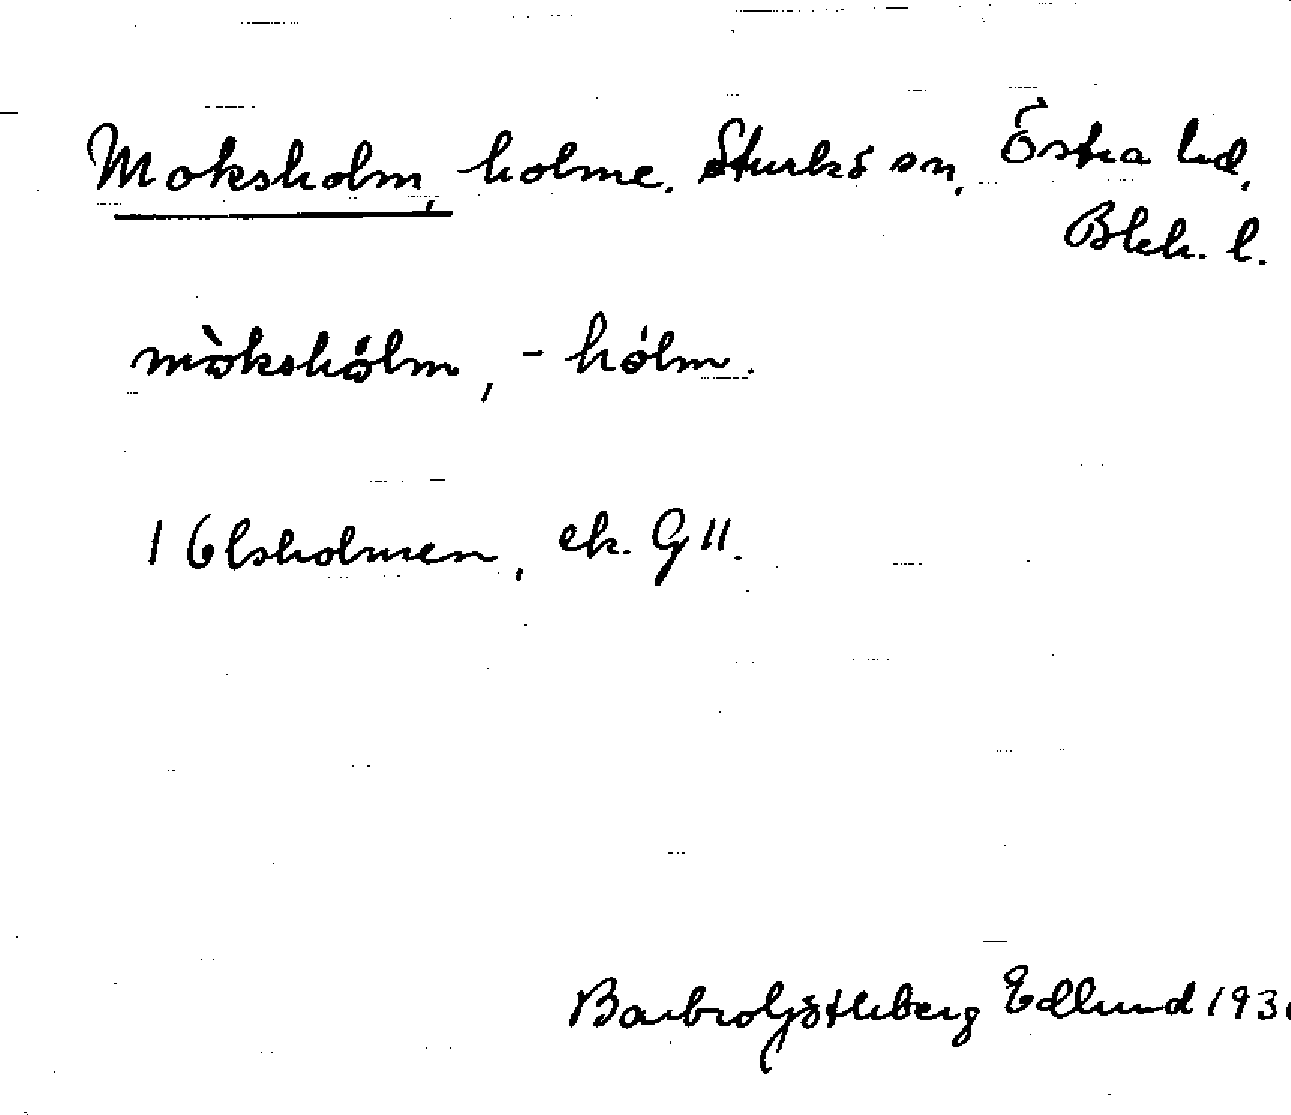 Moksholm, holme. Sturkö sn, Östra hd,
Blek. l.
mòkshólm, - hólm.
1 Olsholmen, ek. G 11.
Barbro Götleberg Edlund 193